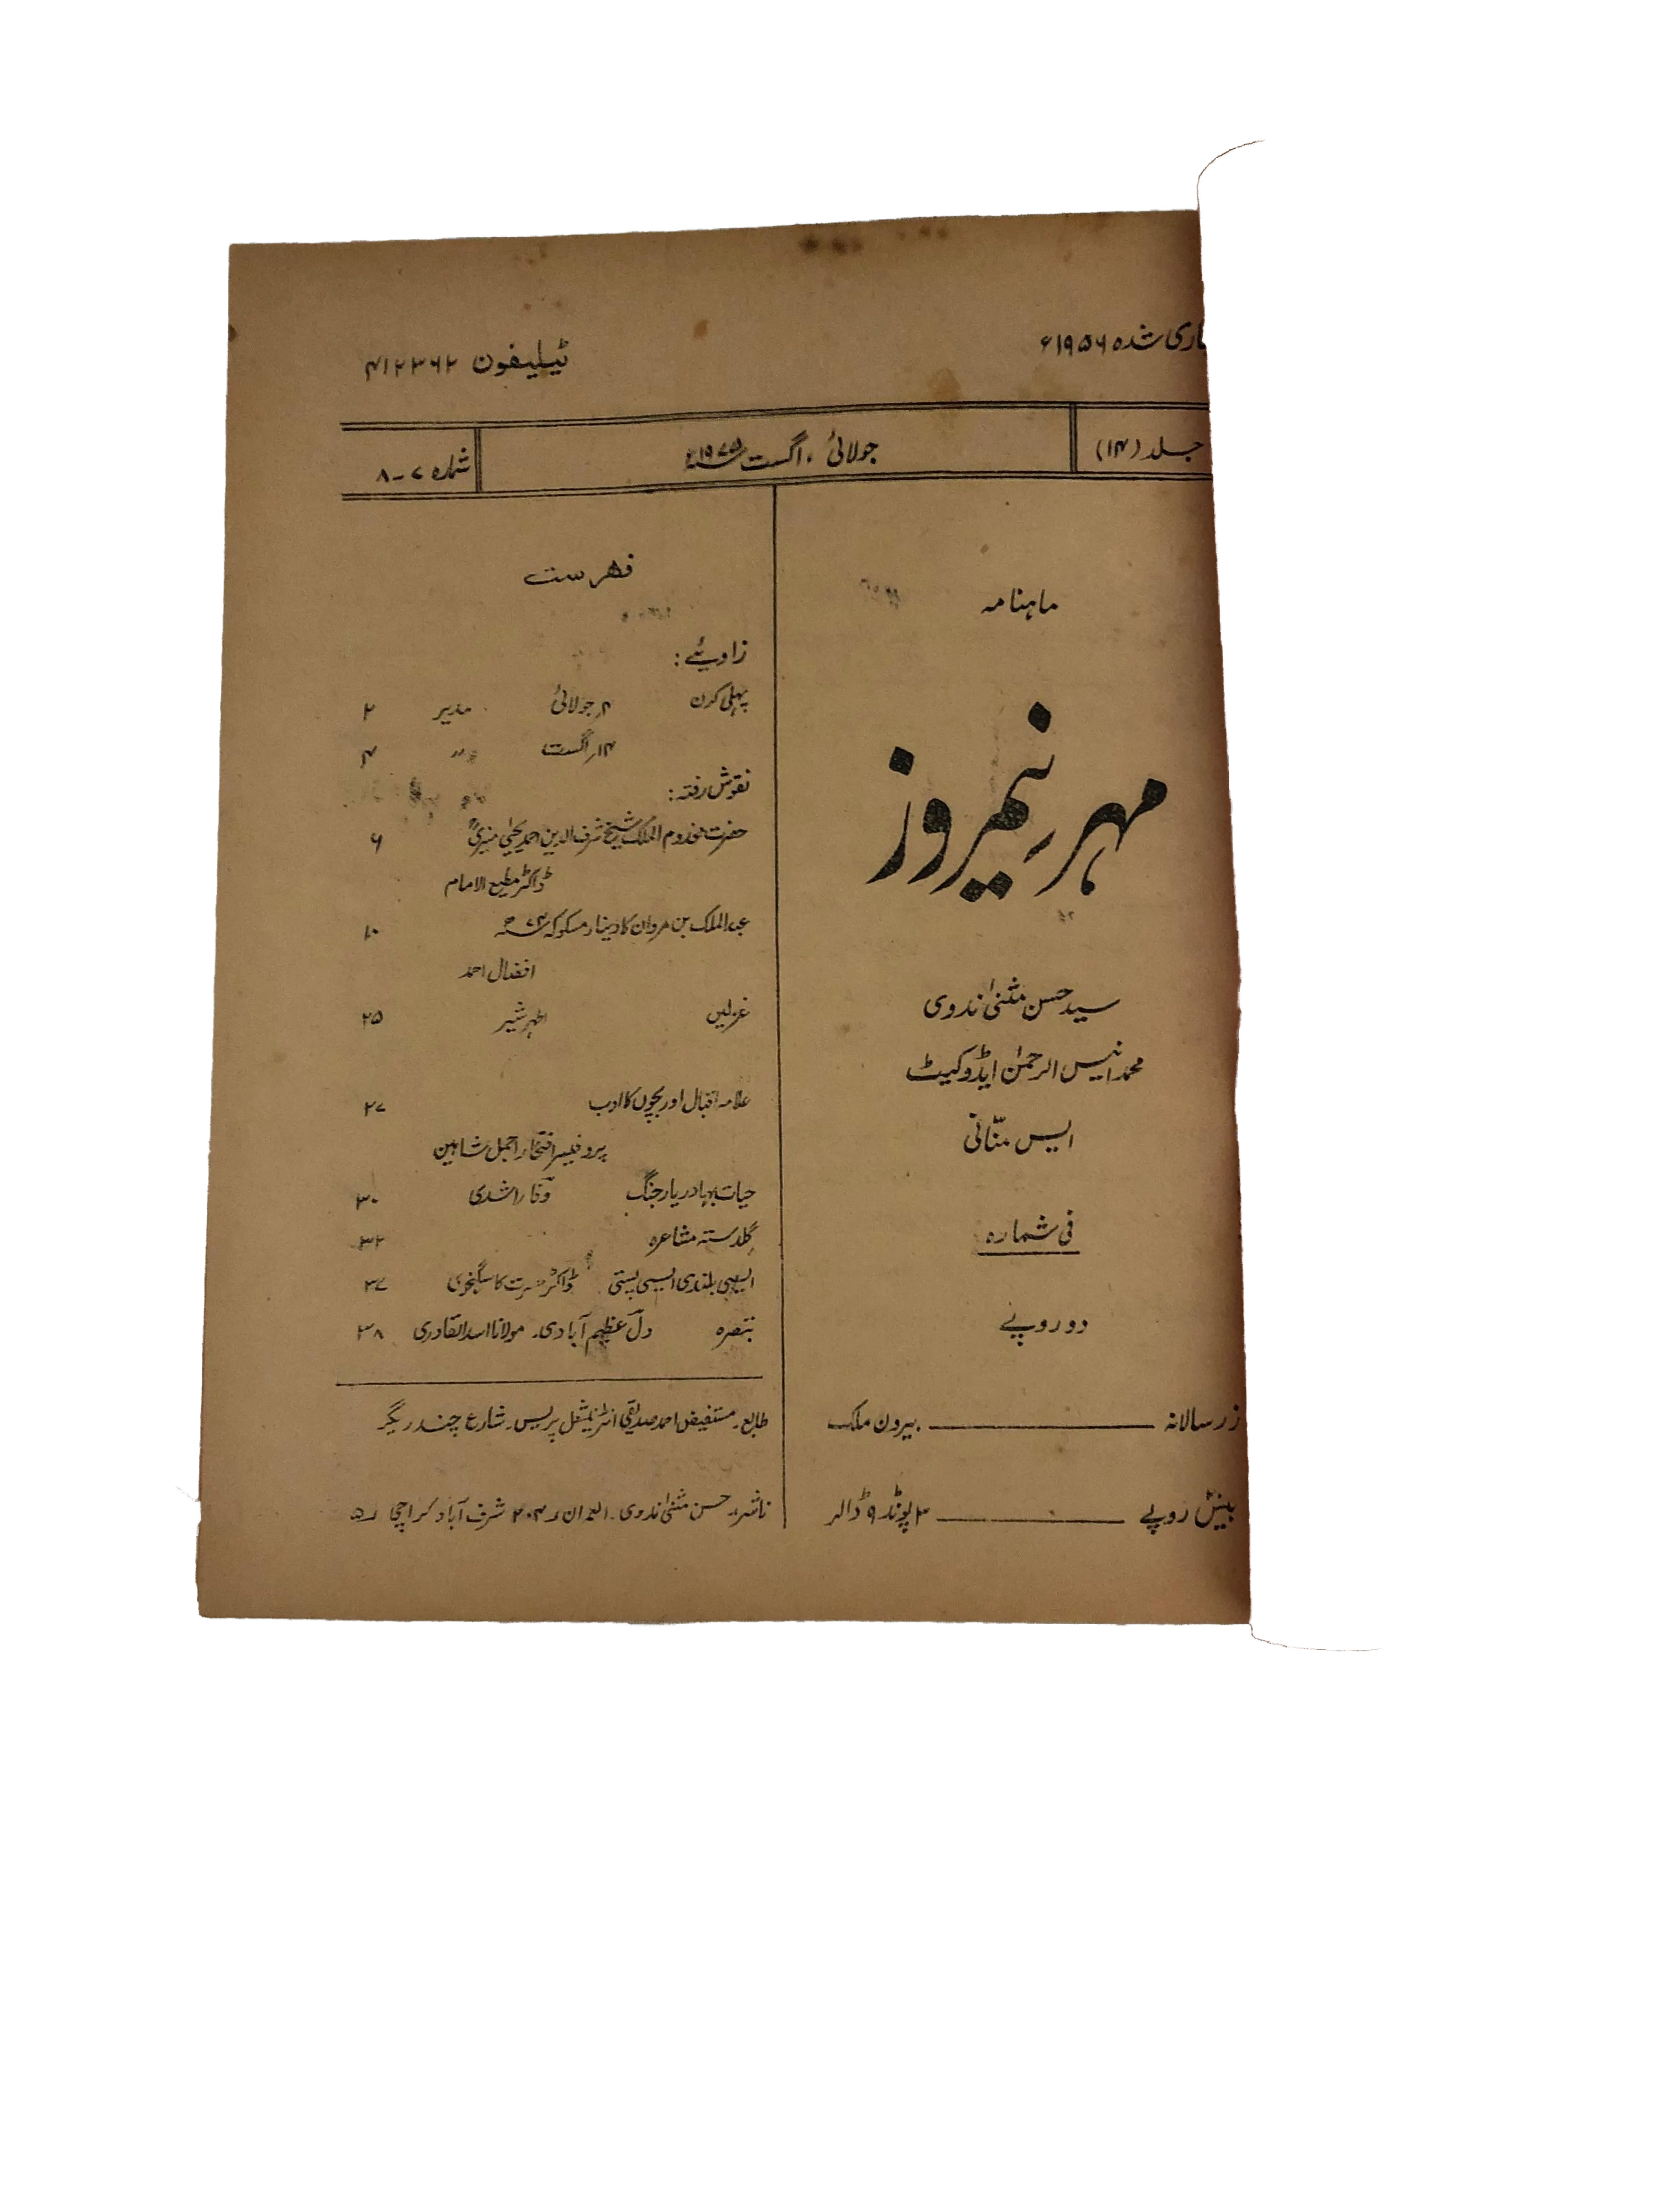 جاری شدہ ۱۹۵۶ء
ٹیلیفون ۴۱۲۳۶۲
جلد (۱۴)
جولائی ، اگست ۱۹۷۵ء
شمارہ ۷-۸
ماہنامہ
مہر نیمروز
سید حسن مثنیٰ ندوی
محمد انیس الرحمٰن ایڈوکیٹ
ایس منّانی
فی شمارہ
دو روپے
زر سالانہ ــــــ بیرون ملک
بیس روپے ــــــ ۳ پونڈ ۹ ڈالر
فہرست
زاویئے :
پہلی کرن ۴ر جولائی مدیر ۲
۱۴ر اگست " ۴
نقوش رفتہ :
حضرت مخدوم الملک شیخ شرف الدین احمد یحییٰ منیریؒ ۶
ڈاکٹر مطیع الامام
عبدالملک بن مروان کا دینار مسکوکہ ۷۴ھ ۱۰
افضال احمد
غزلیں اطہر شیر ۲۵
علامہ اقبال اور بچوں کا ادب ۲۷
پروفیسر افتخار اجمل شاہین
حیات بہادر یار جنگ وفا راشدی ۳۰
گلدستہ مشاعرہ ۳۲
ایسی بلندی ایسی پستی ڈاکٹر حسرت کاسگنجوی ۳۷
تبصرہ دل عظیم آبادی۔ مولانا اسد القادری ۳۸
طابع۔ مستفیض احمد صدیقی انٹرنیشنل پریس۔ شارع چندریگر
ناشر:۔ حسن مثنیٰ ندوی۔ العمران ر ۲۰۴ شرف آباد کراچی ر۵